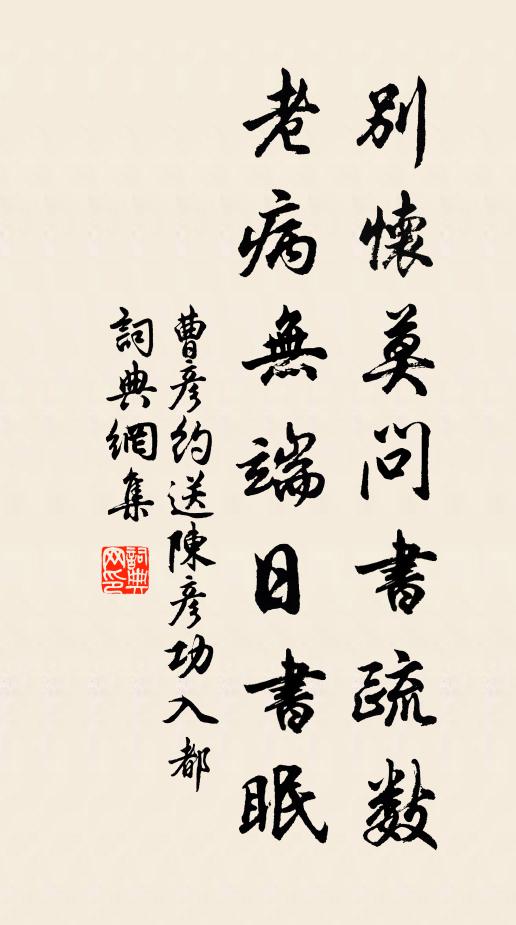 別懷莫問書疏數
老病無端日書眠
曹彦約送陳彦功入都
詞典網集
詞典网印